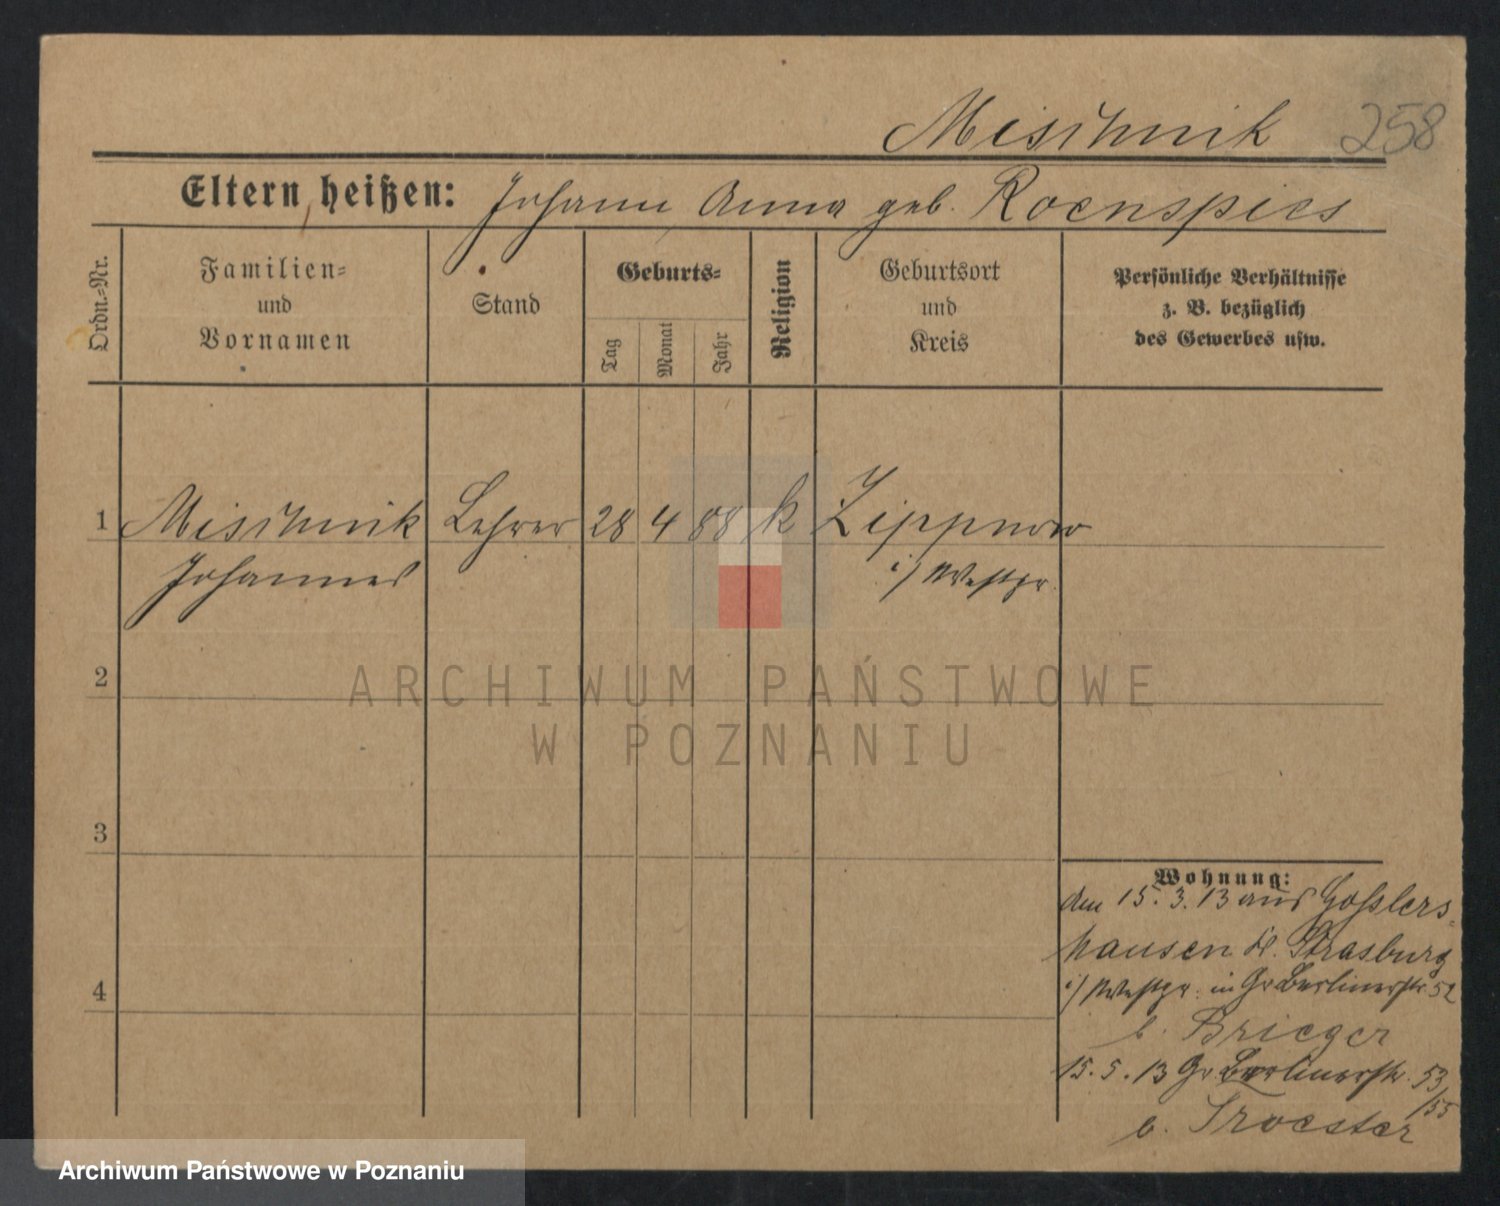 Mischnik 258
Eltern heißen: Johann Anna geb. Roenspies
Ordn.-Nr.
Familien- und Vornamen
Stand
Geburts-
Tag
Monat
Jahr
Religion
Geburtsort und Kreis
Persönliche Verhältnisse
z. B. bezüglich
des Gewerbes usw.
1 Mischnik Lehrer 28 4 88 k Zippnow
Johannes i/ Westpr.
2
ARCHIWUM PAŃSTWOWE
W POZNANIU
3
Wohnung:
den 15.3.13 aus Gosslers-
hausen Kr. Strasburg
4
i/ Westpr. in Gr. Berlinerstr. 52
b. Brieger
15.5.13 Gr. Berlinerstr. 53/55
b. Troester
Archiwum Państwowe w Poznaniu